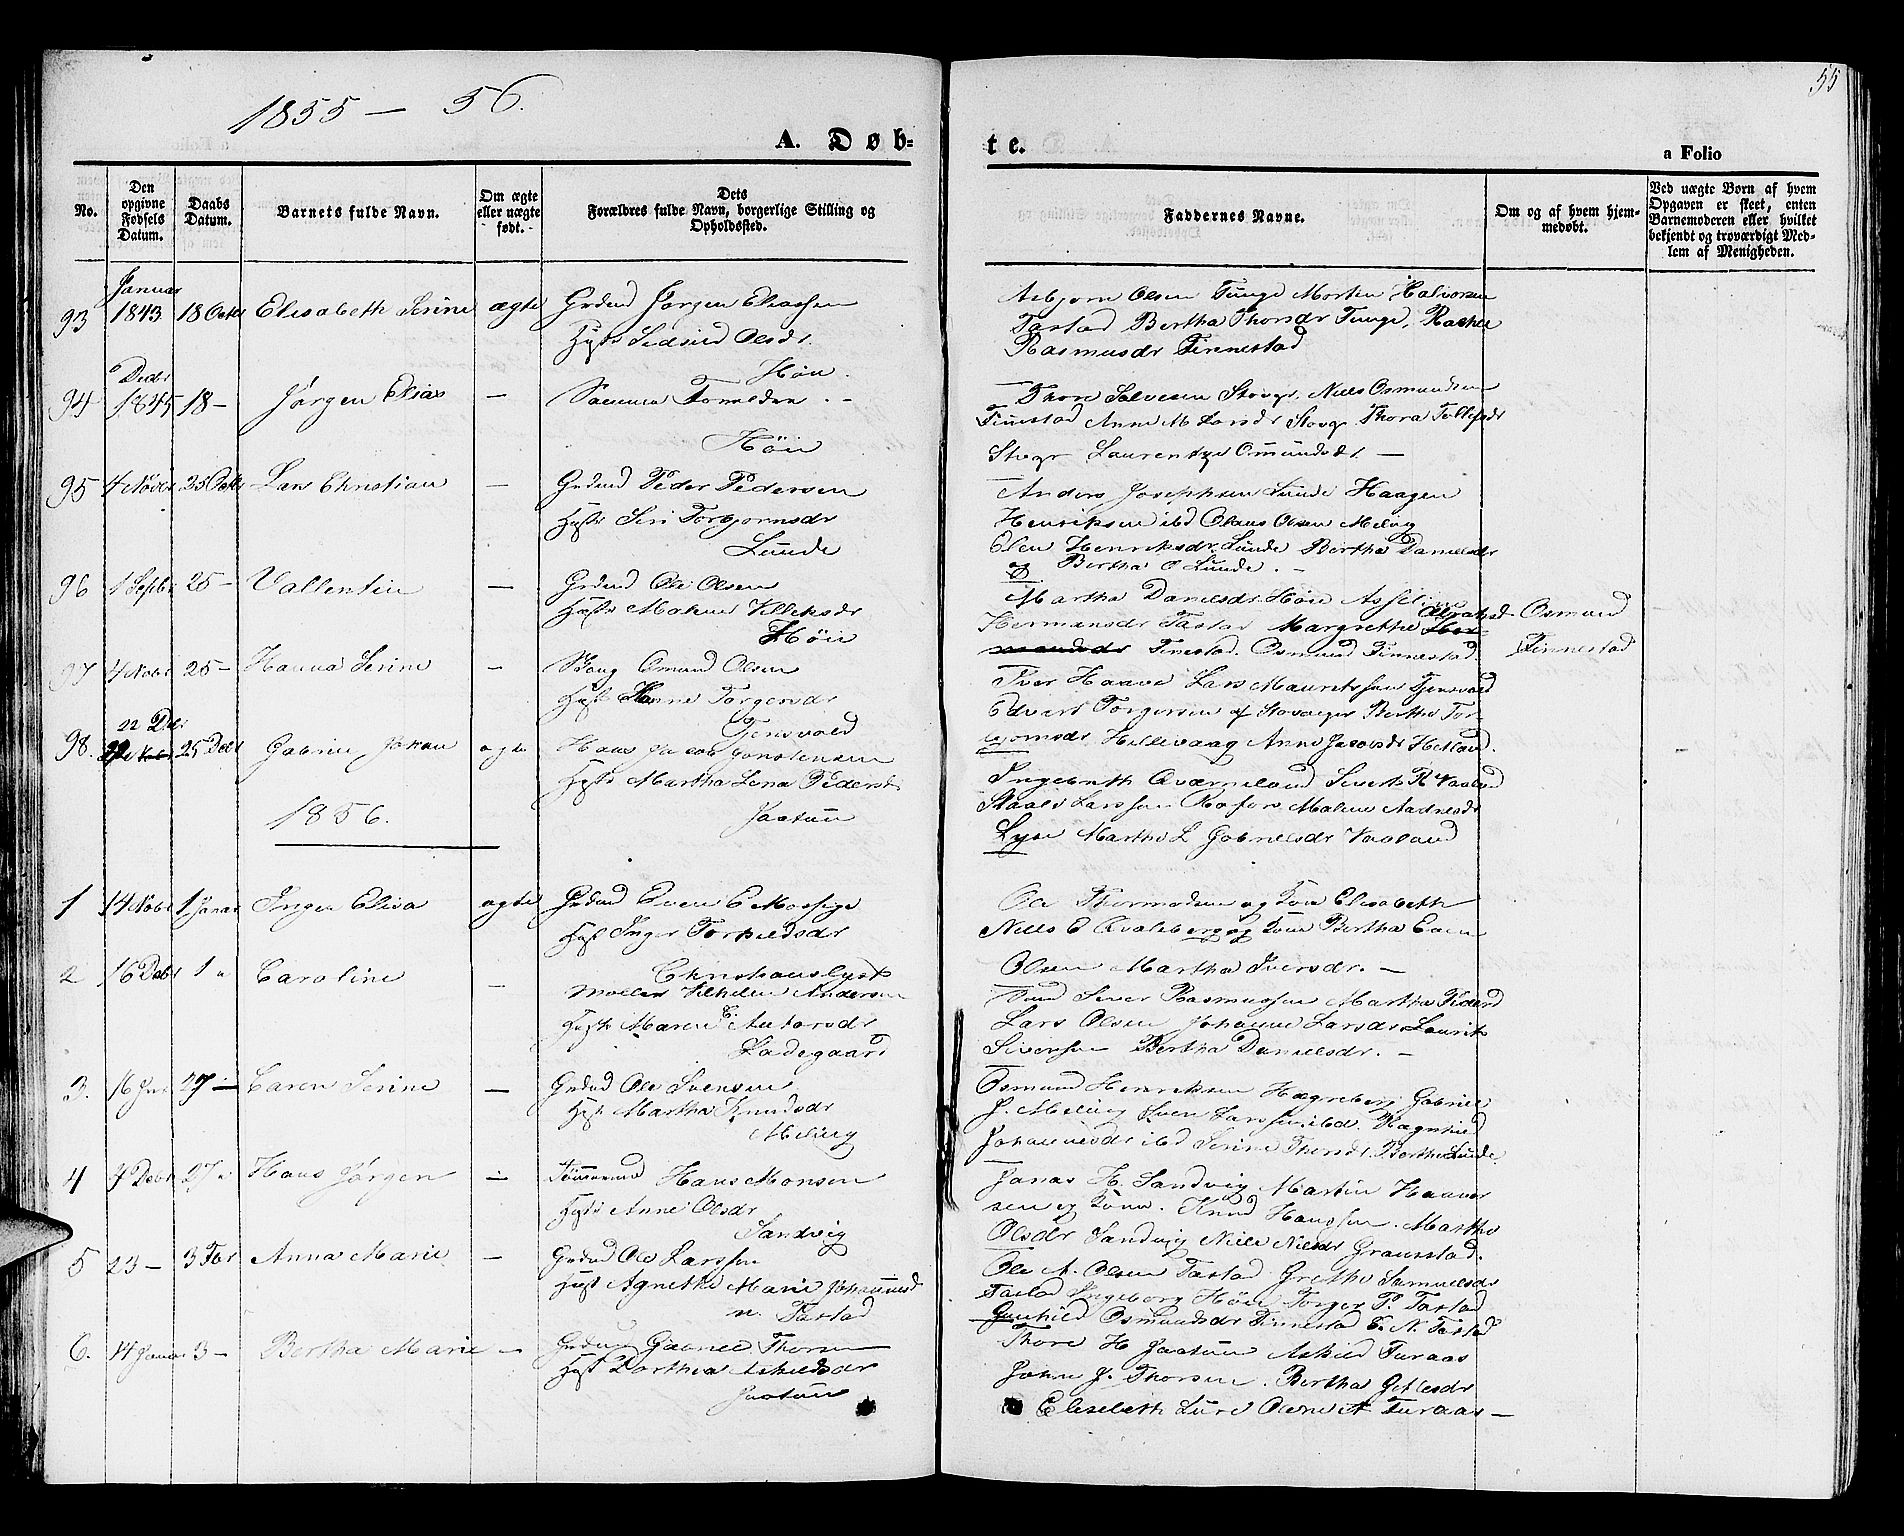 1855 – 56.
55
A. Døb=
te.
a Folio
No.
Den opgivne Fødsels Datum.
Daabs Datum.
Barnets fulde Navn.
Om ægte eller uægte født.
Dets Forældres fulde Navn, borgerlige Stilling og Opholdssted.
Faddernes Navne.
Om og af hvem hjemmedøbt.
Ved uægte Børn af hvem Opgaven er skeet, enten Barnemoderen eller hvilket bekjendt og troværdigt Medlem af Menigheden.
93 Januar 1843 18 Octbr Elisabeth Serine ægte Grdmd Jørgen Eliassen
Hustr Sedsild Olsdr.
Høie.
Asbjørn Olsen Tunge Morten Halvorsen
Tastad Bertha Thorsdr Tunge, Rachel
Rasmusdr Finnestad
94 Decbr 1845 18 – Jørgen Elias – Samme Forældre. –
Høie
Thore Salvesen Stovgr. Niels Osmundsen
Finestad Anne M Larsdr Stovgr Thora Tollefsdr
Stogr Laurentze Osmundsdr. –
95 4 Novbr 25 Octbr Lars Christian – Grdmd Peder Pedersen
Hustr Seri Torbjørnsdr
Lunde
Anders Josephsen Lunde Haagen
Henriksen ibd Claus Olsen Meling
Elen Henriksdr. Lunde Bertha Danielsdr
og Bertha O Lunde. –
96 1 Septbr 25 – Vallentin – Grdmd Ole Olsen
Hustr Malene Villeksdr
Høie
Martha Danielsdr Høie
Hermansdr Tastad Margrethe
Finestad. Osmund Finnestad.
Osmund
Finnestad
97 4 Novbr 25 – Hanna Serine – Osmund Olsen
Hustr Hanne Torgersdr
Tjensvold
Iver Haave Lars Mauritssen Tjensvold
Edvard Torgersen af Stovgr Bertha Tor-
bjornsdr Hillevaag Anne Jacobsdr Hetland.
98. 22 Dcbr 25 Decbr Gabriel Johan ægte Hans Jacob Gonstensen
Hustr Martha Lena Pedersdr
Jaatun
Ingebreth Qværneland Sivert R Vaaland
Lars Larssen Malene Aadnesdr
Lyse Martha L Gabrielsdr Vaaland
1856.
1 14 Novbr 1 Januar Inger Elisa ægte Grdmd Even E Mossige
Hust Inger Torkildsdr
Christianslyst
Ole Thormodsen og Kone Elisabeth
Niels E Qvaleberg og Kone Bertha Even
Olsen Martha Iversdr. –
2 16 Decbr 1 " Caroline – Møller Vilhelm Andersen
Hustr Maren E. Antonsdr
Ladegaard
Sivert Rasmussen Martha
Lars Olsen Johanne Larsdr Laurits
Sivertsen Bertha Danielsdr. –
3. 16 27 – Caren Serine – Grdmd Ole Svensen
Hust Martha Knudsdr
Meling
Osmund Henriksen Hægreberg Gabriel
J. Meling Sven Larssen ibd. Ragnhild
Johannesdr ibd Serine Thorsdr. Bertha Lunde.
4 4 Decbr 27 " Hans Jørgen – Tømmermd Hans Monsen
Hustr Anne Olsdr
Sandvig
Jonas H. Sandvig Martin Haaver
sen og Kone. Knud Hanssen. Martha
Olsdr Sandvig Niels Nielsdr Grausstad.
5 23 – 3 Febr Anna Marie – Grdmd Ole Larssen
Hust Agnethe Marie Johannesd
n. Tastad
Ole A. Olsen Tastad. Grethe Samuelsdr
Tastad Ingeborg Høie Torger P. Tastad
Gunhild Osmundsdr Finnestad E. N. Tastad
6. 14 Januar 3 – Bertha Marie – Grdmd Gabriel Thorsen
Hust Dorthea Askildsdr
Jaatun
Thore H Jaatun Askild Turaas
John J. Thorsen. Bertha
Elisebeth Lura A Turaas –